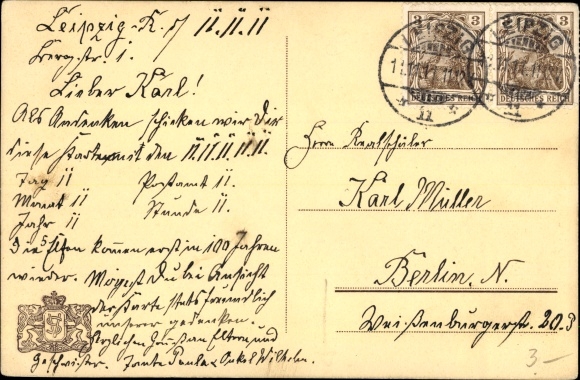 Leipzig-R. d 11.11.11
Bergstr. 1.
Lieber Karl!
Als Andenken schicken wir Dir
diese Karte mit den 11.11.11.11.11.
Tag 11 Postamt 11.
Monat 11 Stunde 11.
Jahr 11
Die 5 Elfen kommen erst in 100 Jahren
wieder. Mögest Du bei Ansicht
der Karte stets freundlich
unserer gedenken.
Herzlichen Gruß an Eltern und
Geschwister. Tante Paula & Onkel Wilhelm.
3 3
DEUTSCHES REICH DEUTSCHES REICH
LEIPZIG
11
LEIPZIG
11
Herrn Realschüler
Karl Müller
Berlin. N.
Weißenburgerst. 20.3
3-